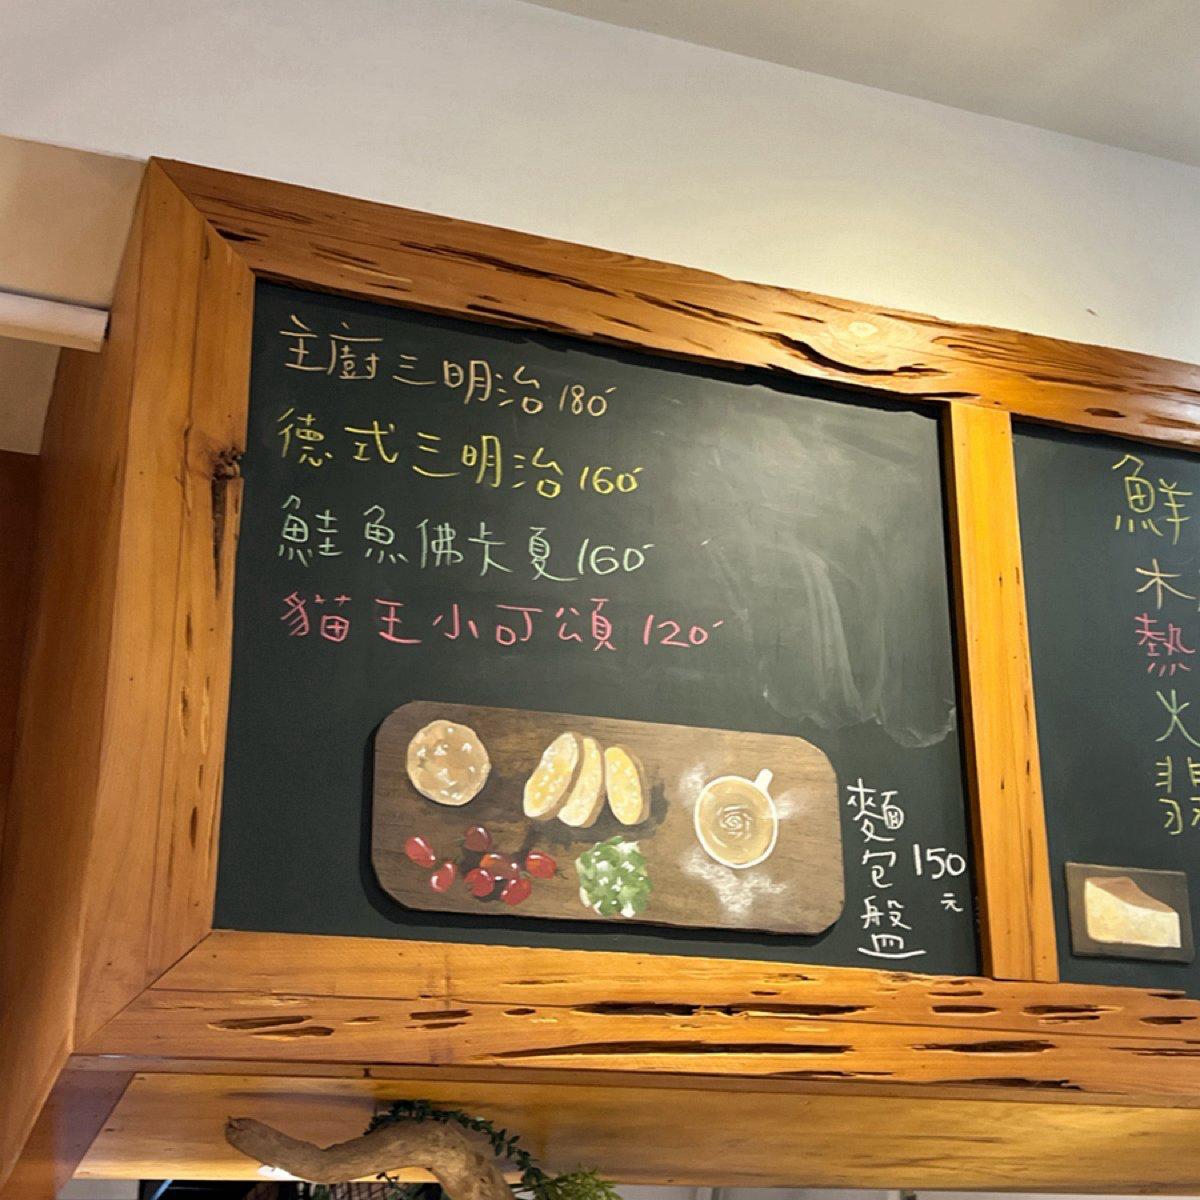 主廚三明治 180
德式三明治 160
鮭魚佛卡夏 160
貓王小可頌 120
麵包盤
150
元
鮮
木
熱
火
翡